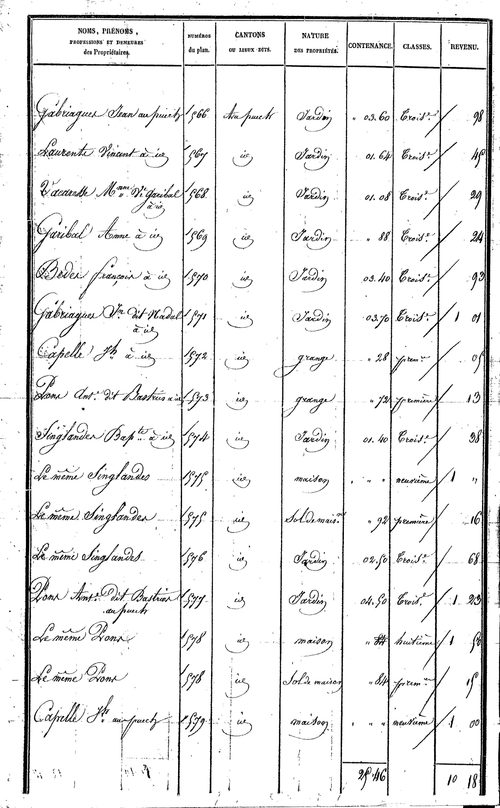 NOMS, PRÉNOMS, PROFESSIONS ET DEMEURES des Propriétaires. NUMÉROS du plan. CANTONS OU LIEUX DITS. NATURE DES PROPRIÉTÉS. CONTENANCE. CLASSES. REVENU.
Gabriagues Jean au puech 1566 Au puech Jardin " 03.60 Trois.e 98
Laurente Vincent à id 1567 id Jardin 01.64 Trois.e 45
Vacaresse M.me V.e Garibal à id 1568 id Jardin 01.08 Trois.e 29
Garibal Anne à id 1569 id Jardin " 88 Trois.e 24
Bedes françois à id 1570 id Jardin 03.40 Trois.e 93
Gabriagues J.n dit Nadal à id 1571 id Jardin 03.70 Trois.e 1 01
Capelle J.h à id 1572 id grange " 28 prem.re 05
Pons Ant.e dit Bastrios à id 1573 id grange " 72 première 13
Singlandes Bap.te à id 1574 id Jardin 01.40 Trois.e 38
Le même Singlandes 1575 id maison " " " neuvième 1 "
Le même Singlandes 1575 id Sol de mais.on " 92 première 16
Le même Singlandes 1576 id Jardin 02.50 Trois.e 68
Pons Ant.e dit Bastrios au puech 1577 id Jardin 04.50 Trois.e 1 23
Le même Pons 1578 id maison " huitième 1 50
Le même Pons 1578 id Sol de maison " 84 prem.re 15
Capelle J.h au puech 1579 id maison " " " neuvième 1 00
25.46 10 18